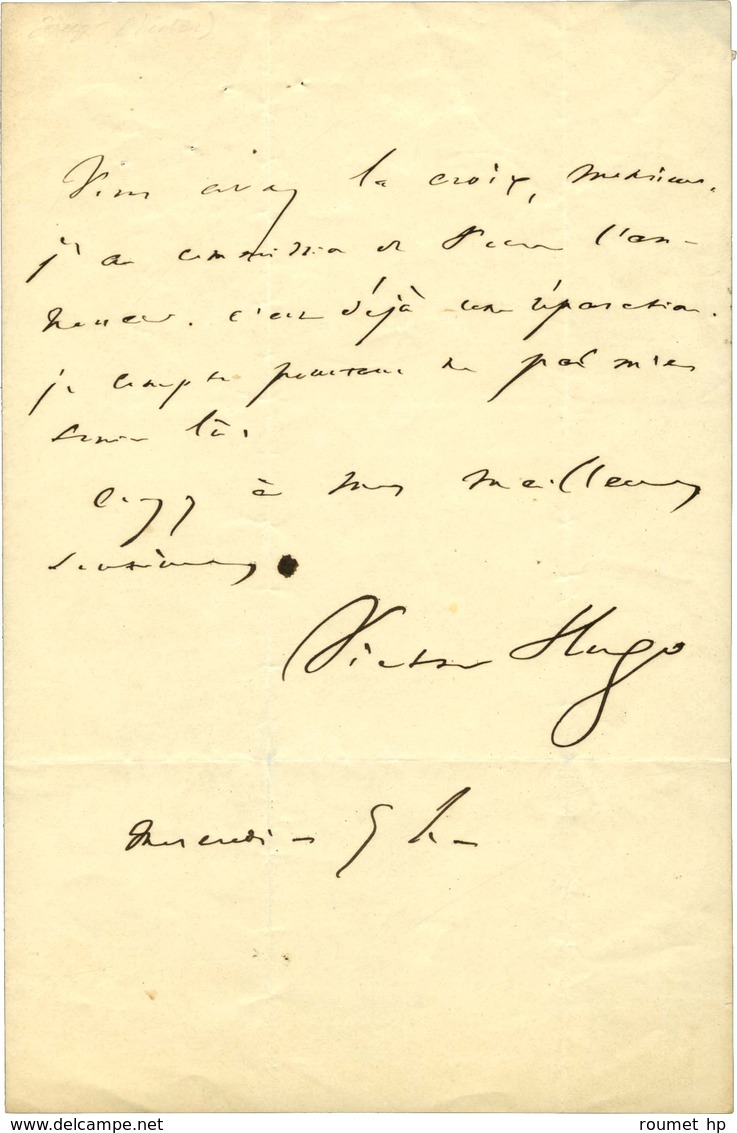 Vous avez la croix, monsieur.
j'ai commission de vous l'an-
noncer. c'est déjà une réparation.
je compte pourtant ne pas m'en
tenir là.
croyez à mes meilleurs
sentiments
Victor Hugo
mercredi – 5 h –
roumet hp